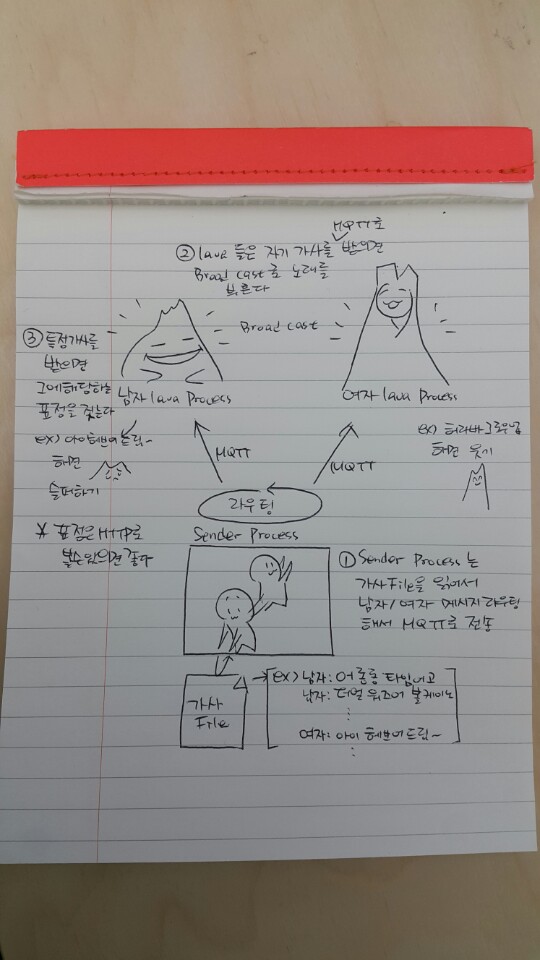 MQTT로
② lava 들은 자기 가사를 받으면
Broad cast로 노래를
부른다
Broad cast
③ 특정가사를
받으면
그에해당하는
표정을 짓는다
ex) 아이해브어드림~
하면
슬퍼하기
남자 lava Process
여자 lava Process
MQTT
MQTT
ex)
하면 웃기
라우팅
Sender Process
* 표정은 HTTP로
볼수있으면 좋다
① Sender Process 는
가사File을 읽어서
남자/여자 메시지 라우팅
해서 MQTT로 전송
가사
File
ex) 남자: 어 롱롱 타임어고
남자: 데얼 워즈어 볼케이노
⋮
여자: 아이 해브어드림~
⋮